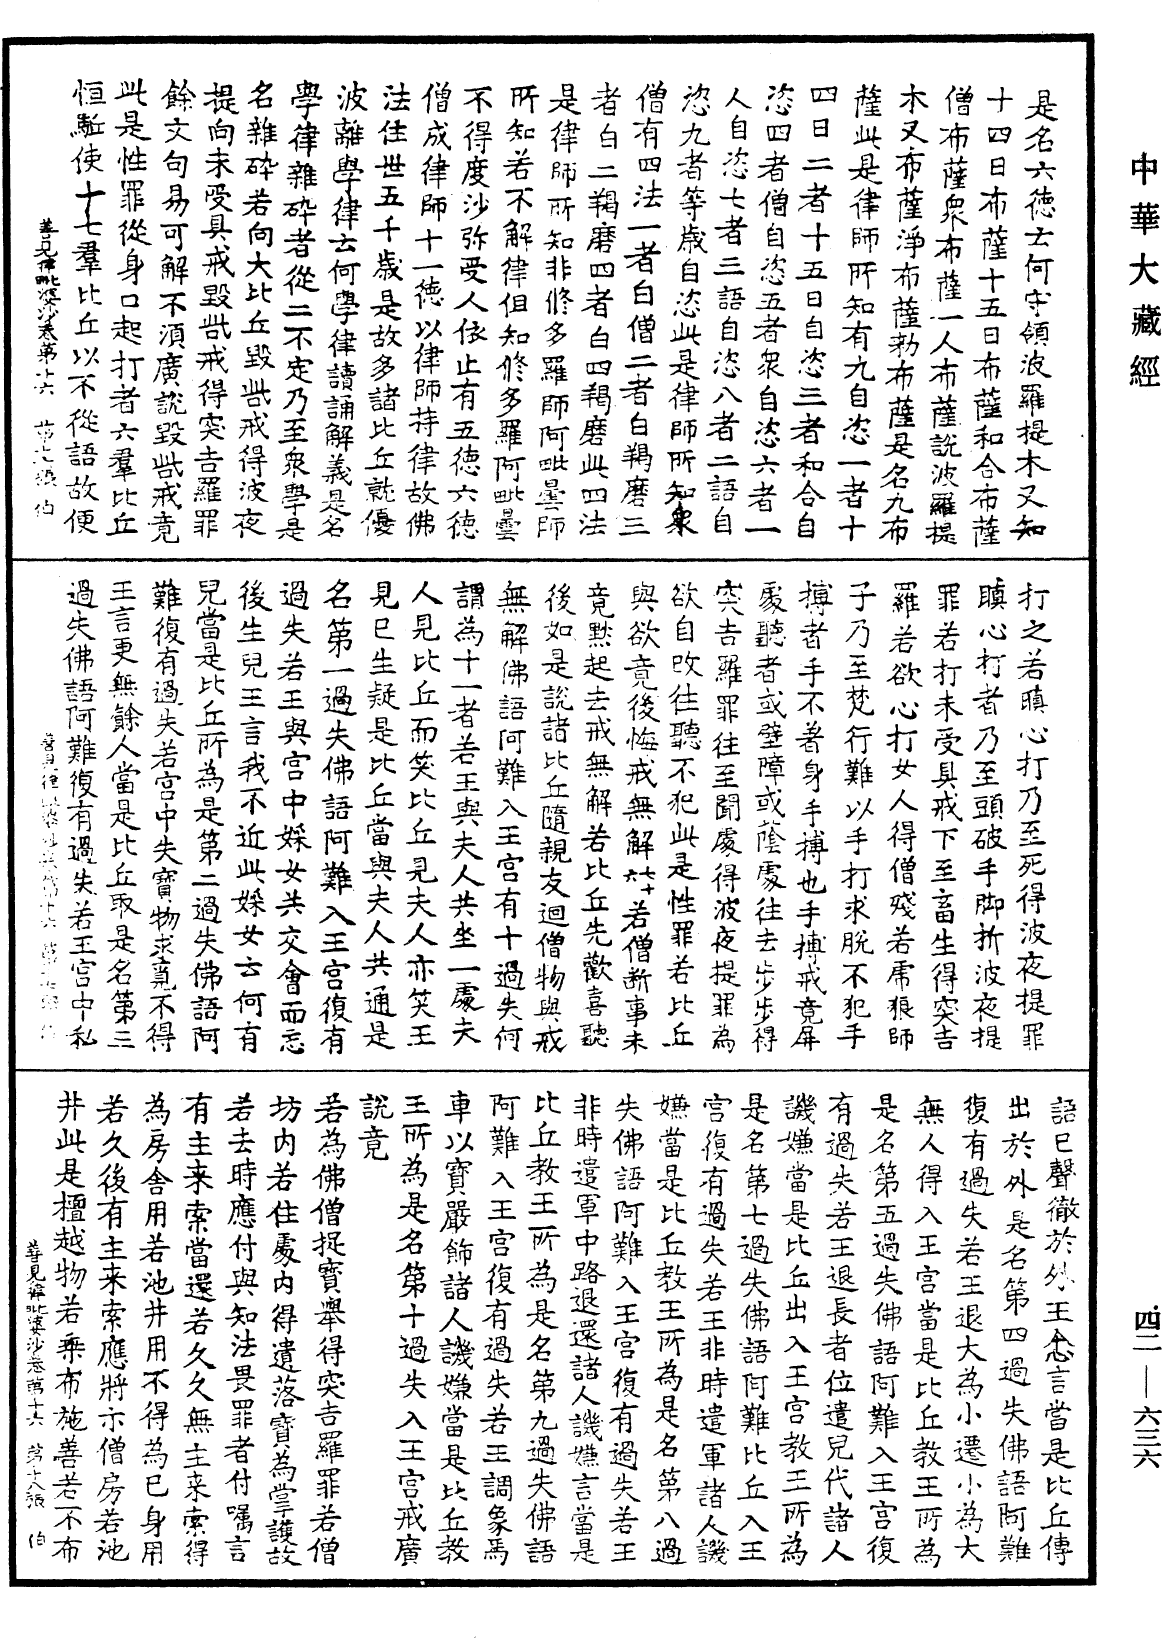 中華大藏經
是名六德云何守領波羅提木叉知
十四日布薩十五日布薩和合布薩
僧布薩衆布薩一人布薩說波羅提
木叉布薩淨布薩勑布薩是名九布
薩此是律師所知有九自恣一者十
四日二者十五日自恣三者和合自
恣四者僧自恣五者衆自恣六者一
人自恣七者三語自恣八者二語自
恣九者等歲自恣此是律師所知衆
僧有四法一者白僧二者白羯磨三
者白二羯磨四者白四羯磨此四法
是律師所知非修多羅師阿毗曇師
所知若不解律但知修多羅阿毗曇
不得度沙弥受人依止有五德六德
僧成律師十一德以律師持律故佛
法住世五千歲是故多諸比丘就優
波離學律云何學律讀誦解義是名
學律雜碎者從二不定乃至衆學是
名雜碎若向大比丘毀呰戒得波夜
提向未受具戒毀呰戒得突吉羅罪
餘文句易可解不須廣說毀呰戒竟
此是性罪從身口起打者六羣比丘
恒駈使十七羣比丘以不從語故便
善見律毗婆沙卷第十六 第十七張 伯
打之若瞋心打乃至死得波夜提罪
瞋心打者乃至頭破手脚折波夜提
罪若打未受具戒下至畜生得突吉
羅若欲心打女人得僧殘若席狼師
子乃至梵行難以手打求脫不犯手
搏者手不著身手搏也手搏戒竟屏
處聽者或壁障或蔭處往去步步得
突吉羅罪往至聞處得波夜提罪為
欲自改往聽不犯此是性罪若比丘
與欲竟後悔戒無解六十七若僧断事未
竟默起去戒無解若比丘先歡喜聽
後如是說諸比丘隨親友迴僧物與戒
無解佛語阿難入王宮有十過失何
謂為十一者若王與夫人共坐一處夫
人見比丘而笑比丘見夫人亦笑王
見已生疑是比丘當與夫人共通是
名第一過失佛語阿難入王宮復有
過失若王與宮中婇女共交會而忘
後生兒王言我不近此婇女云何有
兒當是比丘所為是第二過失佛語阿
難復有過失若宮中失寶物求覓不得
王言更無餘人當是比丘取是名第三
過失佛語阿難復有過失若王宮中私
語已聲徹於外王念言當是比丘傳
出於外是名第四過失佛語阿難
復有過失若王退大為小遷小為大
無人得入王宮當是比丘教王所為
是名第五過失佛語阿難入王宮復
有過失若王退長者位遣兒代諸人
譏嫌當是比丘出入王宮教王所為
是名第七過失佛語阿難比丘入王
宮復有過失若王非時遣軍諸人譏
嫌當是比丘教王所為是名第八過
失佛語阿難入王宮復有過失若王
非時遣軍中路退還諸人譏嫌言當是
比丘教王所為是名第九過失佛語
阿難入王宮復有過失若王調象馬
車以寶嚴飾諸人譏嫌當是比丘教
王所為是名第十過失入王宮戒廣
說竟
若為佛僧捉寶舉得突吉羅罪若僧
坊内若住處内得遺落寶為掌護故
若去時應付與知法畏罪者付囑言
有主来索當還若久久無主来索得
為房舍用若池井用不得為已身用
若久後有主来索應將示僧房若池
井此是檀越物若乘布施善若不布
善見律毗婆沙卷第十六 第十八張 伯
四二—六三六